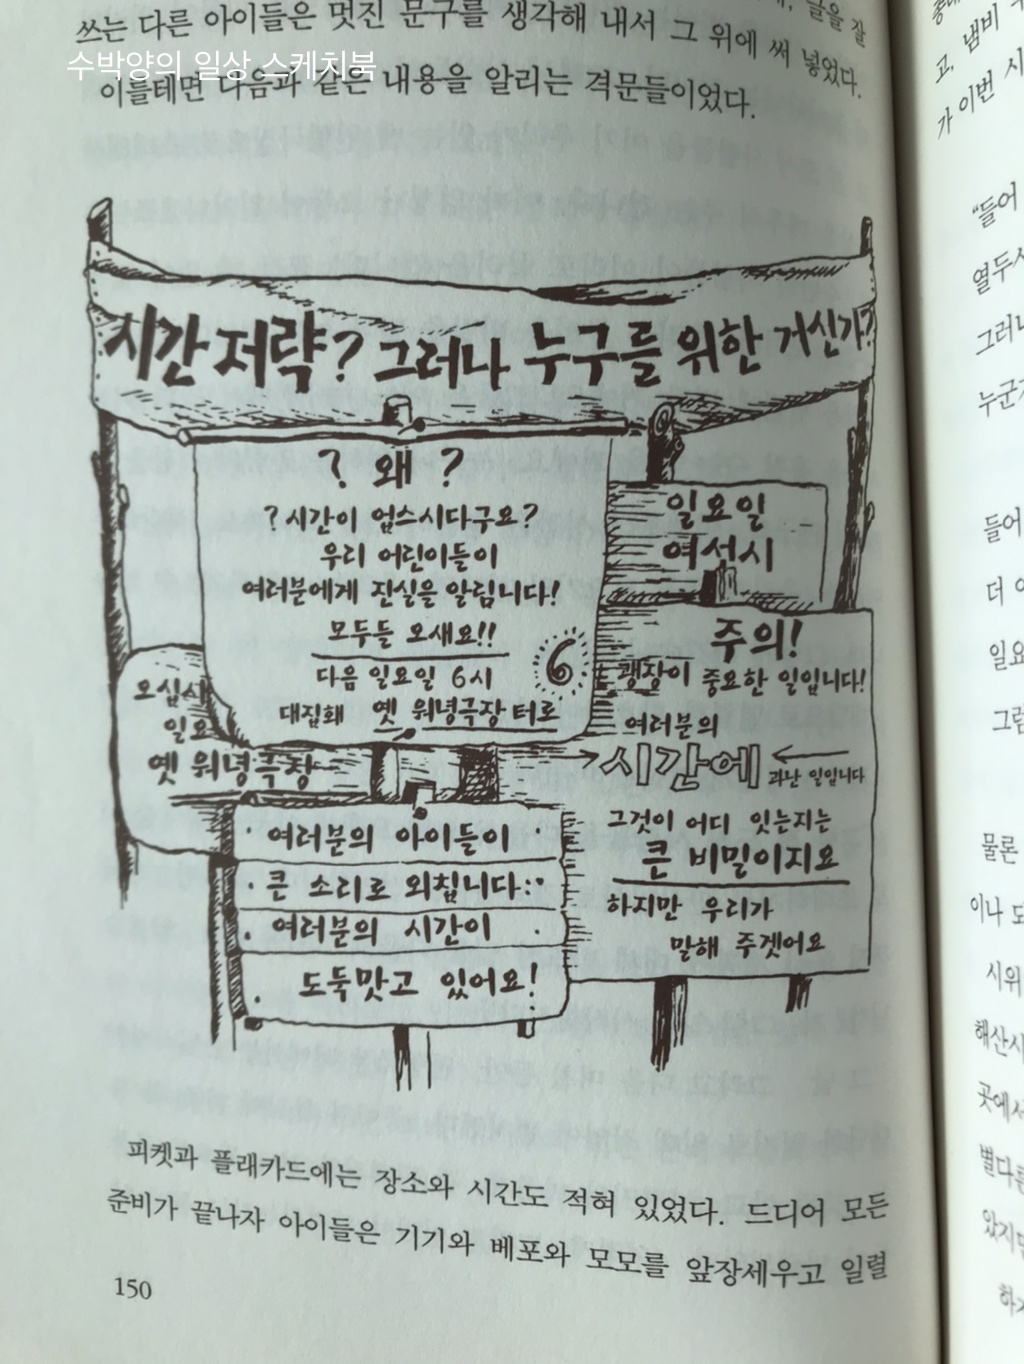 글을 잘
쓰는 다른 아이들은 멋진 문구를 생각해 내서 그 위에 써 넣었다.
수박양의 일상 스케치북
이를테면 다음과 같은 내용을 알리는 격문들이었다.
시간 저략? 그러나 누구를 위한 거신가?
? 왜 ?
? 시간이 업스시다구요?
우리 어린이들이
여러분에게 진실을 알림니다!
모두들 오새요!!
다음 일요일 6시
대집홰 옛 워녕극장 터로
6
일요일
여서시
주의!
굉장이 중요한 일입니다!
여러분의
시간에
과난 일입니다
그것이 어디 잇는지는
큰 비밀이지요
하지만 우리가
말해 주겟어요
오십시
일요
옛 워녕극장
여러분의 아이들이
큰 소리로 외칩니다:
여러분의 시간이
도둑맛고 있어요!
피켓과 플래카드에는 장소와 시간도 적혀 있었다. 드디어 모든
준비가 끝나자 아이들은 기기와 베포와 모모를 앞장세우고 일렬
150
고, 냄비
가 이번 시
"들어
열두시
그러나
누군가
들어
더
일요
그럼
물론
이나 도
시위
해산시
곳에서
별다른
왔지만
하지